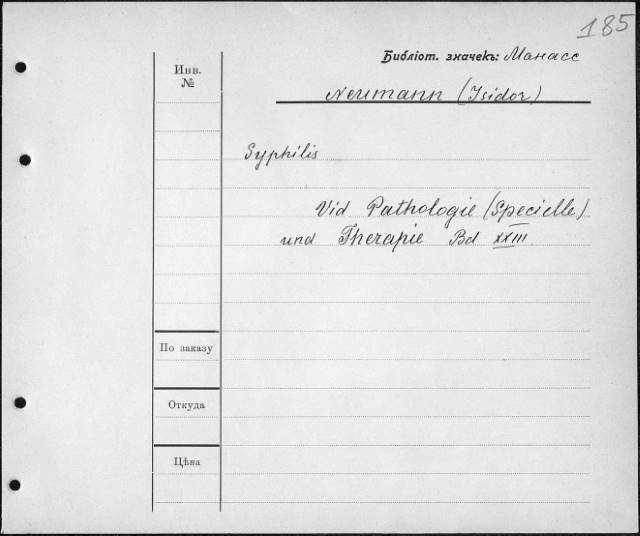 185
Библіот. значекъ: Манасс
Инв.
№
Neumann (Isidor)
Syphilis
Vid Pathologie (Specielle)
und Therapie Bd XXIII.
По заказу
Откуда
Цѣна